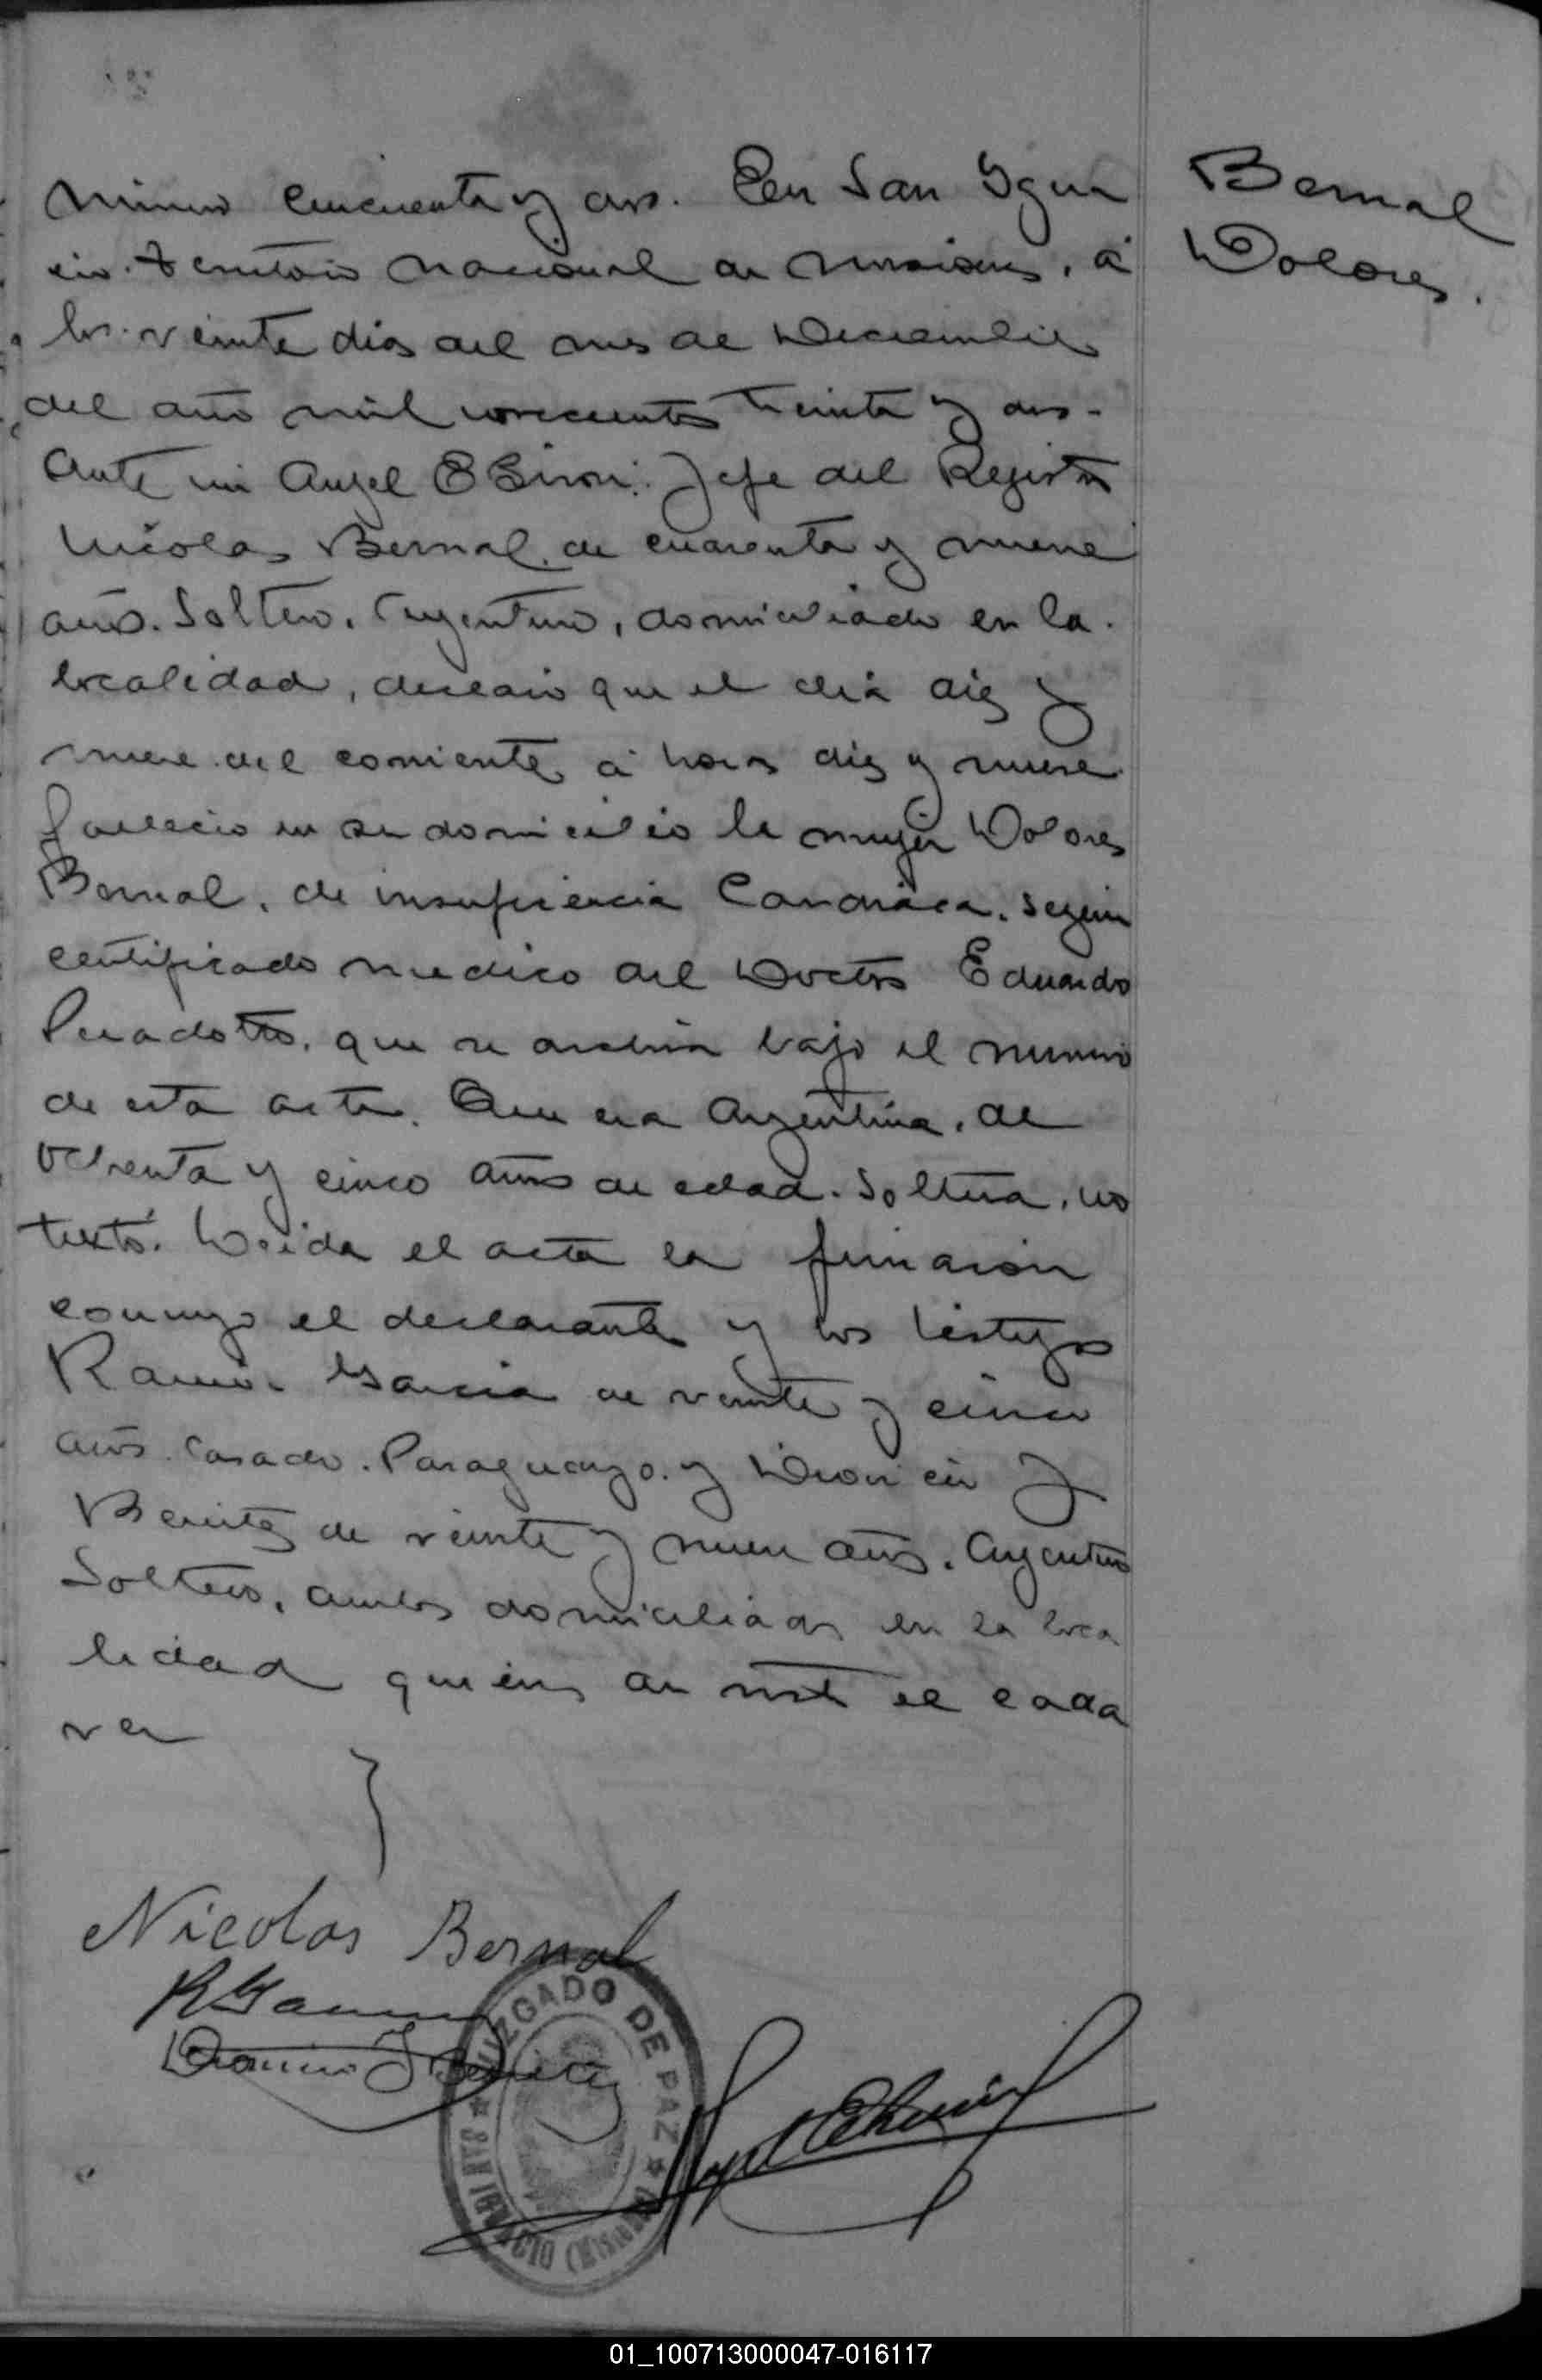 Numero cincuenta y dos. En San Igna
cio. Territorio Nacional de Misiones, á
los veinte dias del mes de Diciembre
del año mil novecientos treinta y dos.
Ante mi Angel E Jefe del Registro
Nicolas Bernal de cuarenta y nueve
años. Soltero, Argentino, domiciliado en la
localidad, declaró que el dia diez y
nueve del corriente á horas diez y nueve
fallecio en su domicilio la mujer Dolores
Bernal, de insuficiencia Cardiaca, según
certificado medico del Doctor Eduardo
que se archiva bajo el numero
de esta acta. Que era Argentina, de
ochenta y cinco años de edad. Soltera, no
testó. Leida el acta la firmaron
conmigo el declarante y los testigos
Ramón Garcia de veinte y cinco
años. Casado. Paraguayo. y Dionicio J
Benitez de veinte y nueve años. Argentino
Soltero, ambos domiciliados en la loca
lidad quienes an visto el cada
ver
Bernal
Dolores.
Nicolas Bernal
R Garcia
Dionicio J Benitez
JUZGADO DE PAZ
SAN IGNACIO (Misiones)
01_100713000047-016117